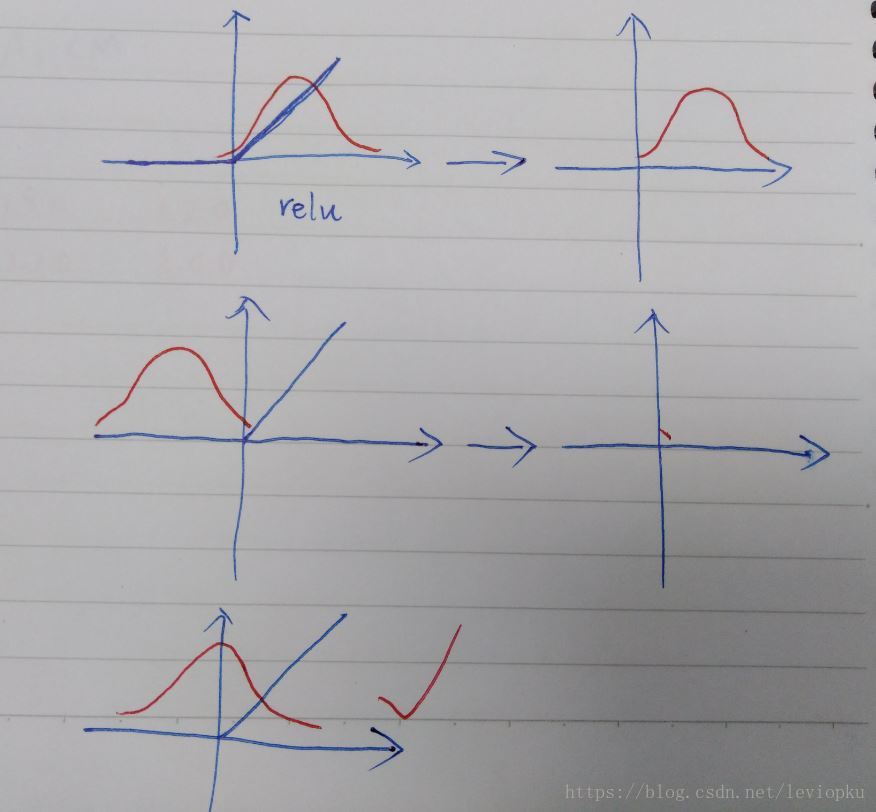 relu
https://blog.csdn.net/leviopku